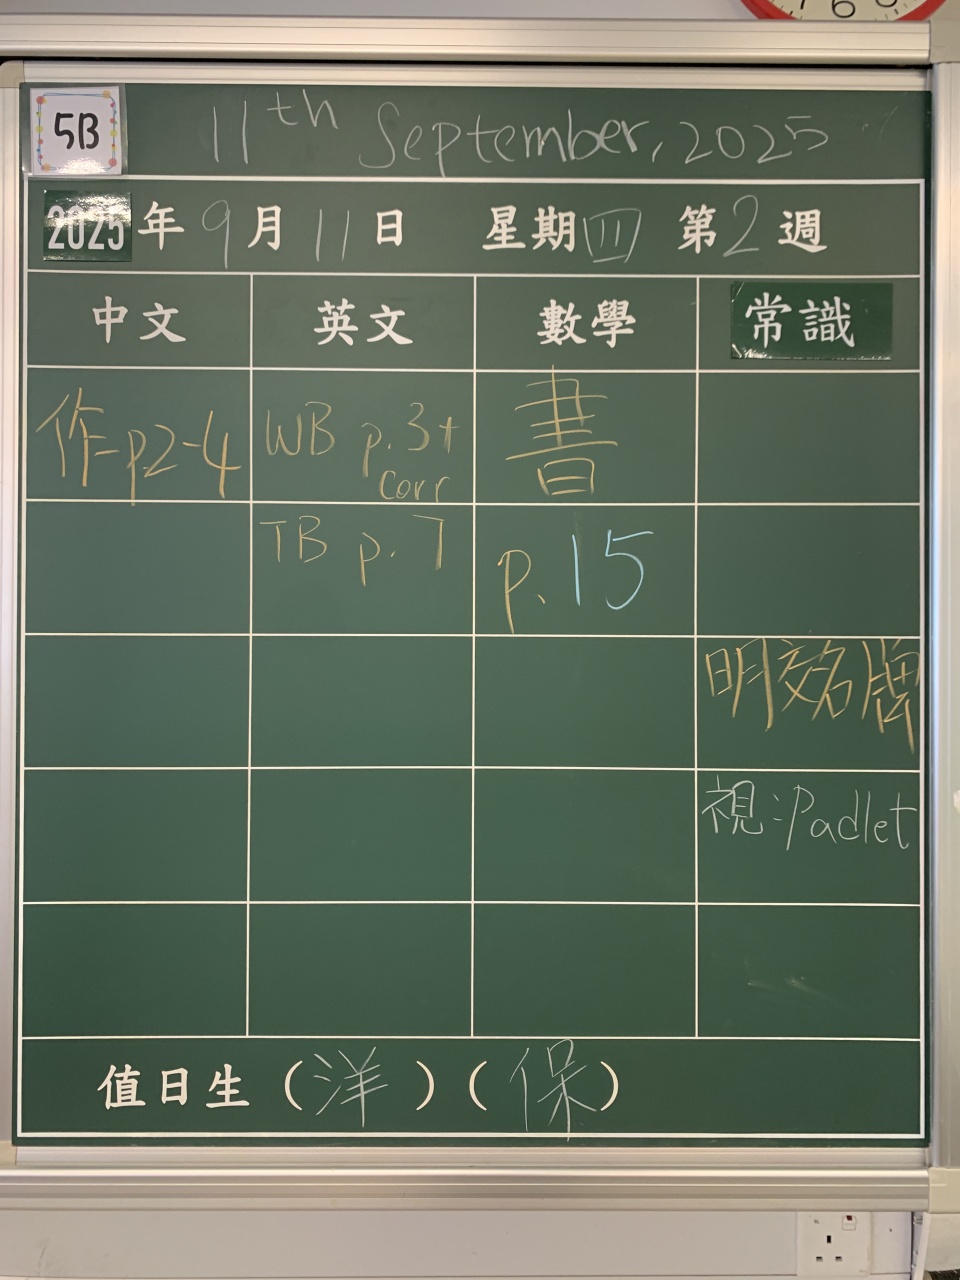 6
5B
11th September, 2025
2025年9月11日 星期四 第2週
中文 英文 數學 常識
作-p2-4 WB p.3+ corr 書
TB p.7 p.15
明交名牌
視:Padlet
值日生(洋)(保)